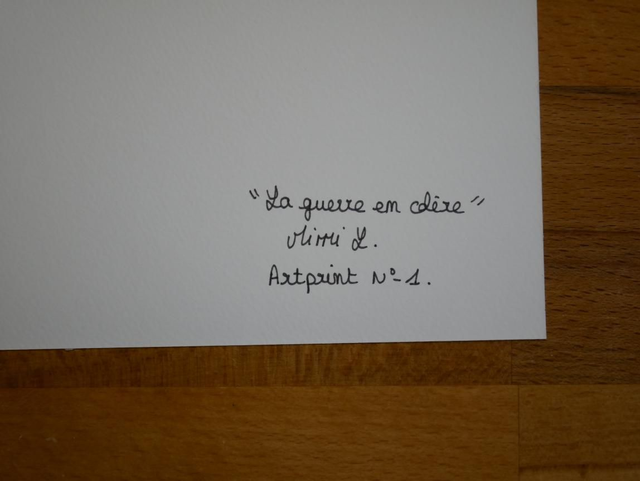 "La guerre en colère"
Mirri L.
Artprint N°-1.